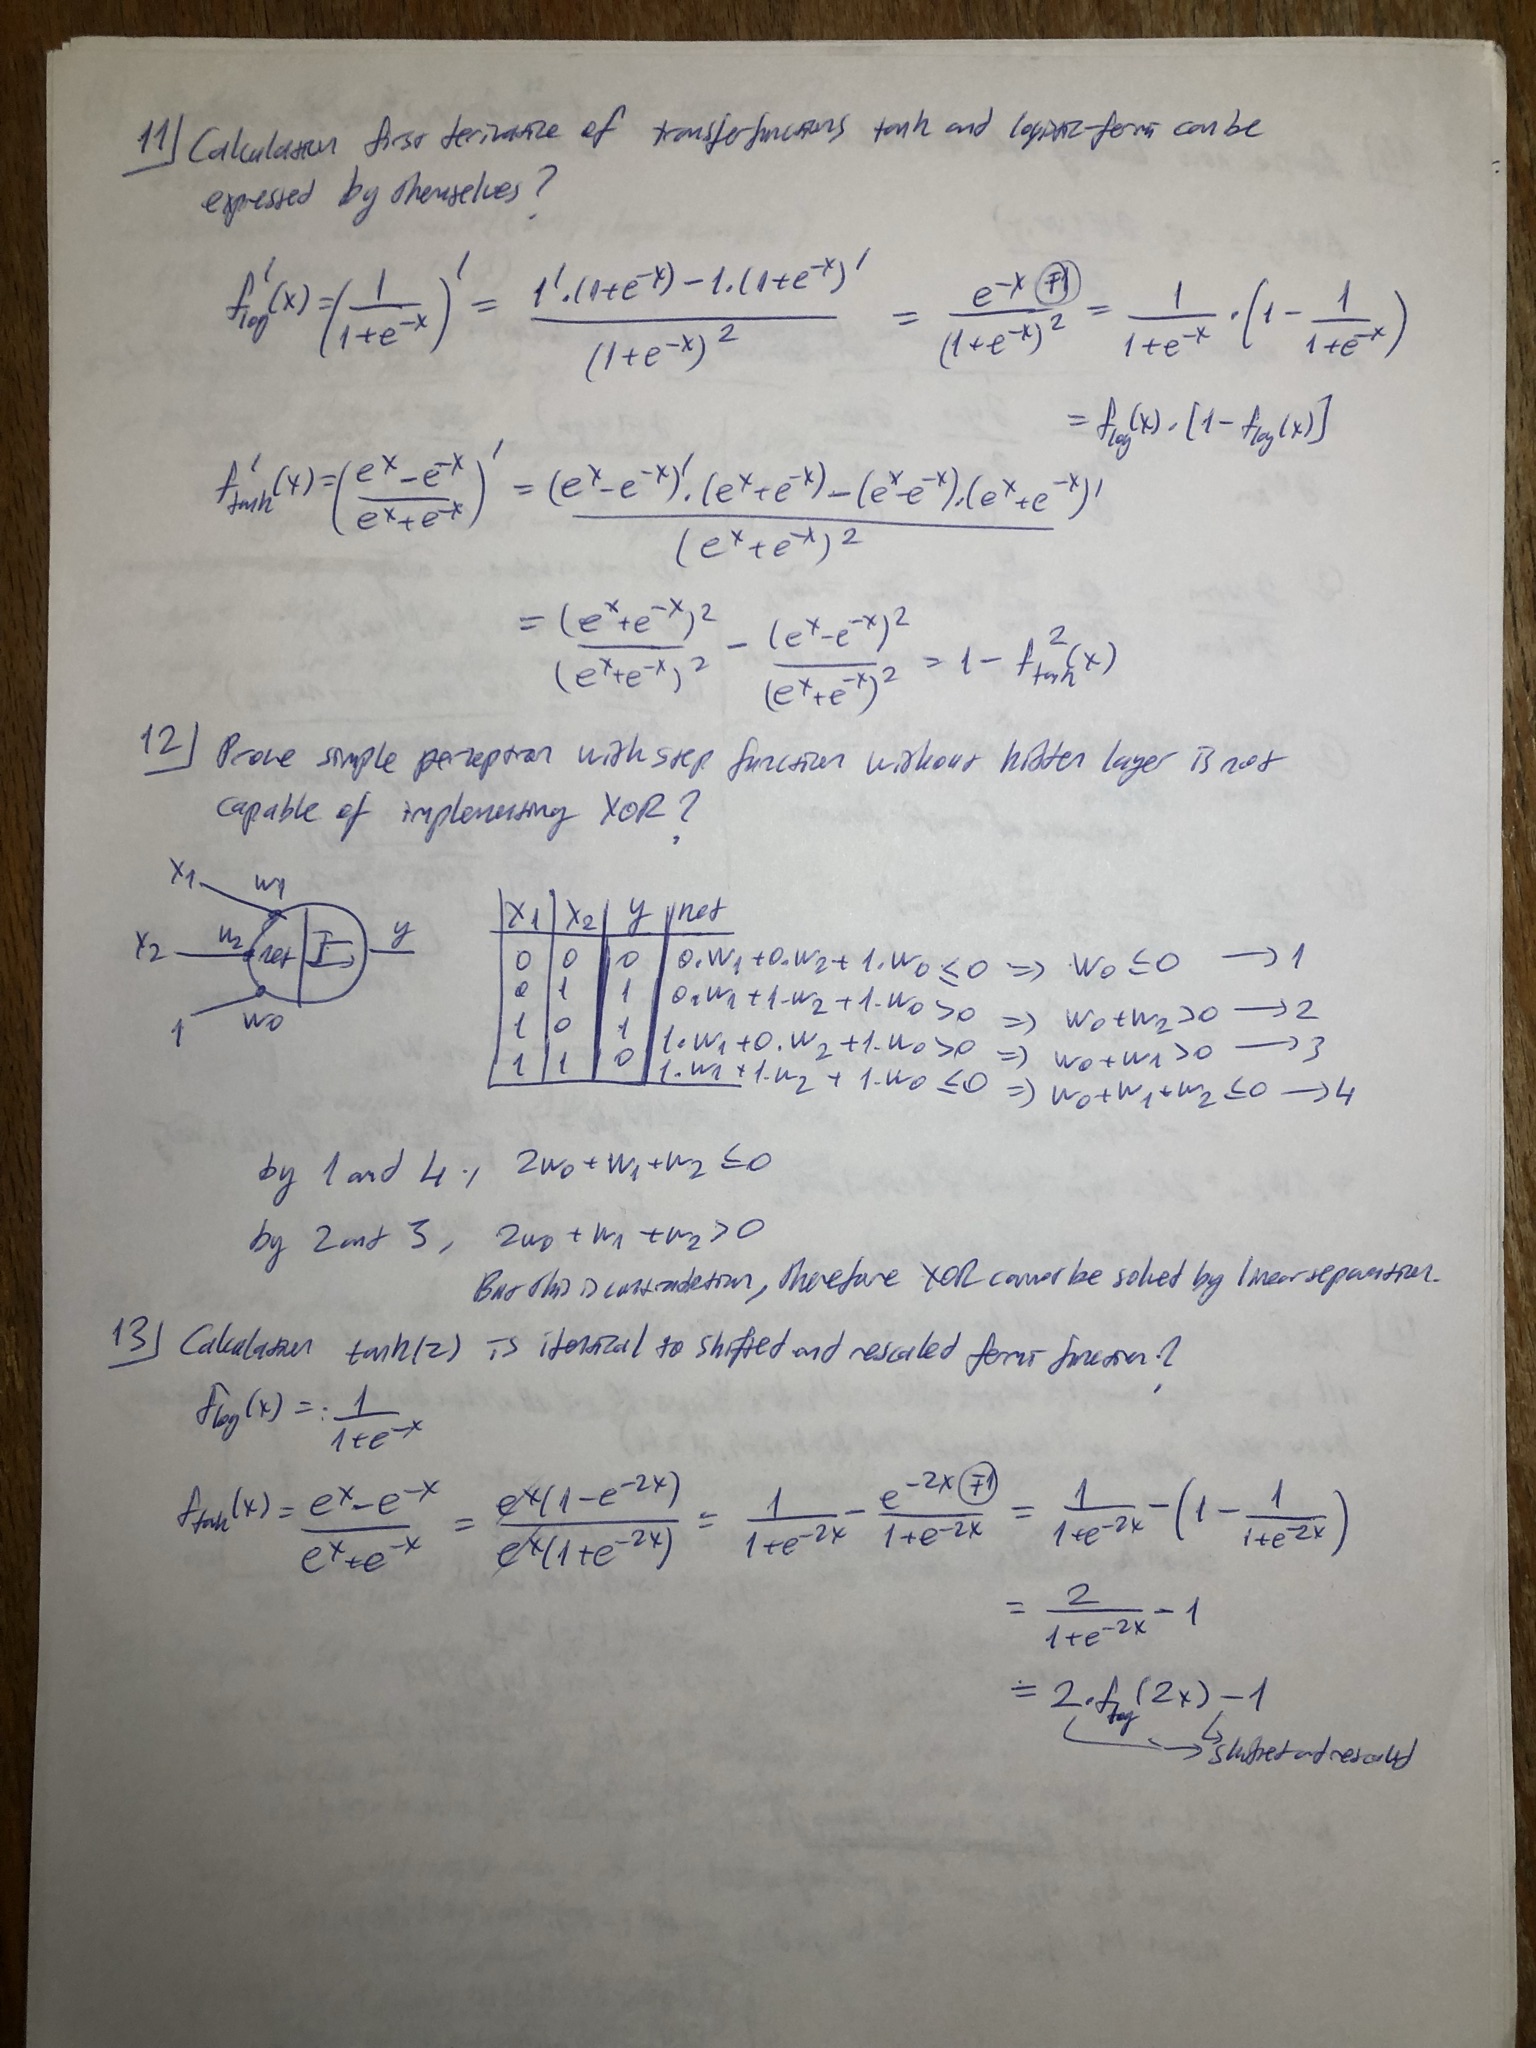 11) Calculation first derivative of transferfunctions tanh and logistic-fermi can be
expressed by themselves?
f'log(x) = (1/(1+e^-x))' = (1'.(1+e^-x) - 1.(1+e^-x)')/(1+e^-x)^2 = (e^-x ∓1)/(1+e^-x)^2 = 1/(1+e^-x) . (1 - 1/(1+e^-x))
= flog(x) . [1 - flog(x)]
f'tanh(x) = ((e^x - e^-x)/(e^x + e^-x))' = ((e^x - e^-x)'.(e^x + e^-x) - (e^x - e^-x).(e^x + e^-x)')/(e^x + e^-x)^2
= (e^x + e^-x)^2/(e^x + e^-x)^2 - (e^x - e^-x)^2/(e^x + e^-x)^2 = 1 - f^2tanh(x)
12) Prove simple perceptron with step function without hidden layer is not
capable of implementing XOR?
x1 w1
x2 w2 net y
1 w0
x1 x2 y net
0 0 0 0.w1+0.w2+1.w0 ≤0 => w0 ≤0 → 1
0 1 1 0.w1+1.w2+1.w0 >0 => w0+w2 >0 → 2
1 0 1 1.w1+0.w2+1.w0 >0 => w0+w1 >0 → 3
1 1 0 1.w1+1.w2+1.w0 ≤0 => w0+w1+w2 ≤0 → 4
by 1 and 4, 2w0+w1+w2 ≤0
by 2 and 3, 2w0+w1+w2 >0
But this is contradiction, therefore XOR cannot be solved by linear separation.
13) Calculation tanh(z) is identical to shifted and rescaled fermi function?
flog(x) = 1/(1+e^-x)
ftanh(x) = (e^x - e^-x)/(e^x + e^-x) = e^x(1-e^-2x)/e^x(1+e^-2x) = 1/(1+e^-2x) - (e^-2x ∓1)/(1+e^-2x) = 1/(1+e^-2x) - (1 - 1/(1+e^-2x))
= 2/(1+e^-2x) - 1
= 2.flog(2x) - 1
→ shifted and rescaled